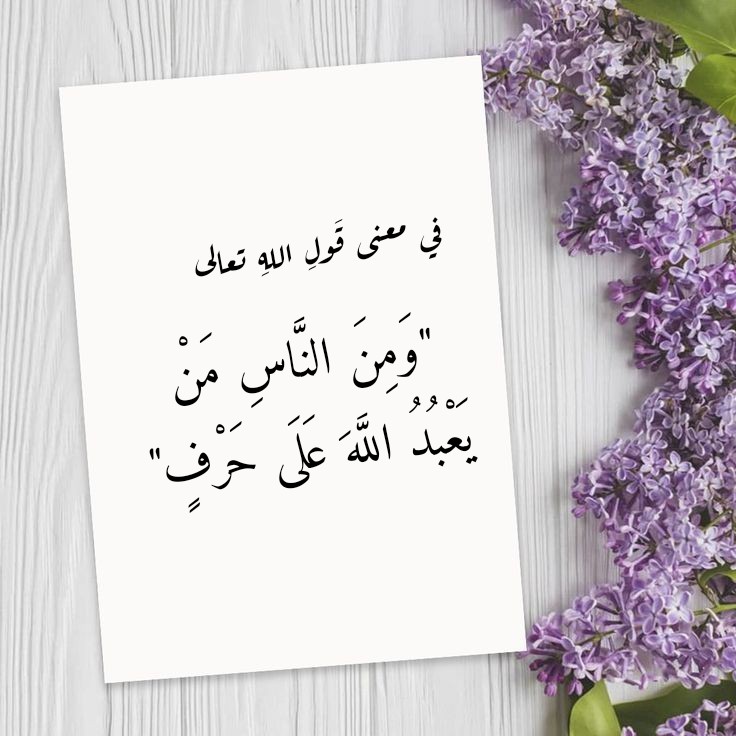 في معنى قَولِ اللهِ تعالى
"وَمِنَ النَّاسِ مَنْ
يَعْبُدُ اللَّهَ عَلَى حَرْفٍ"